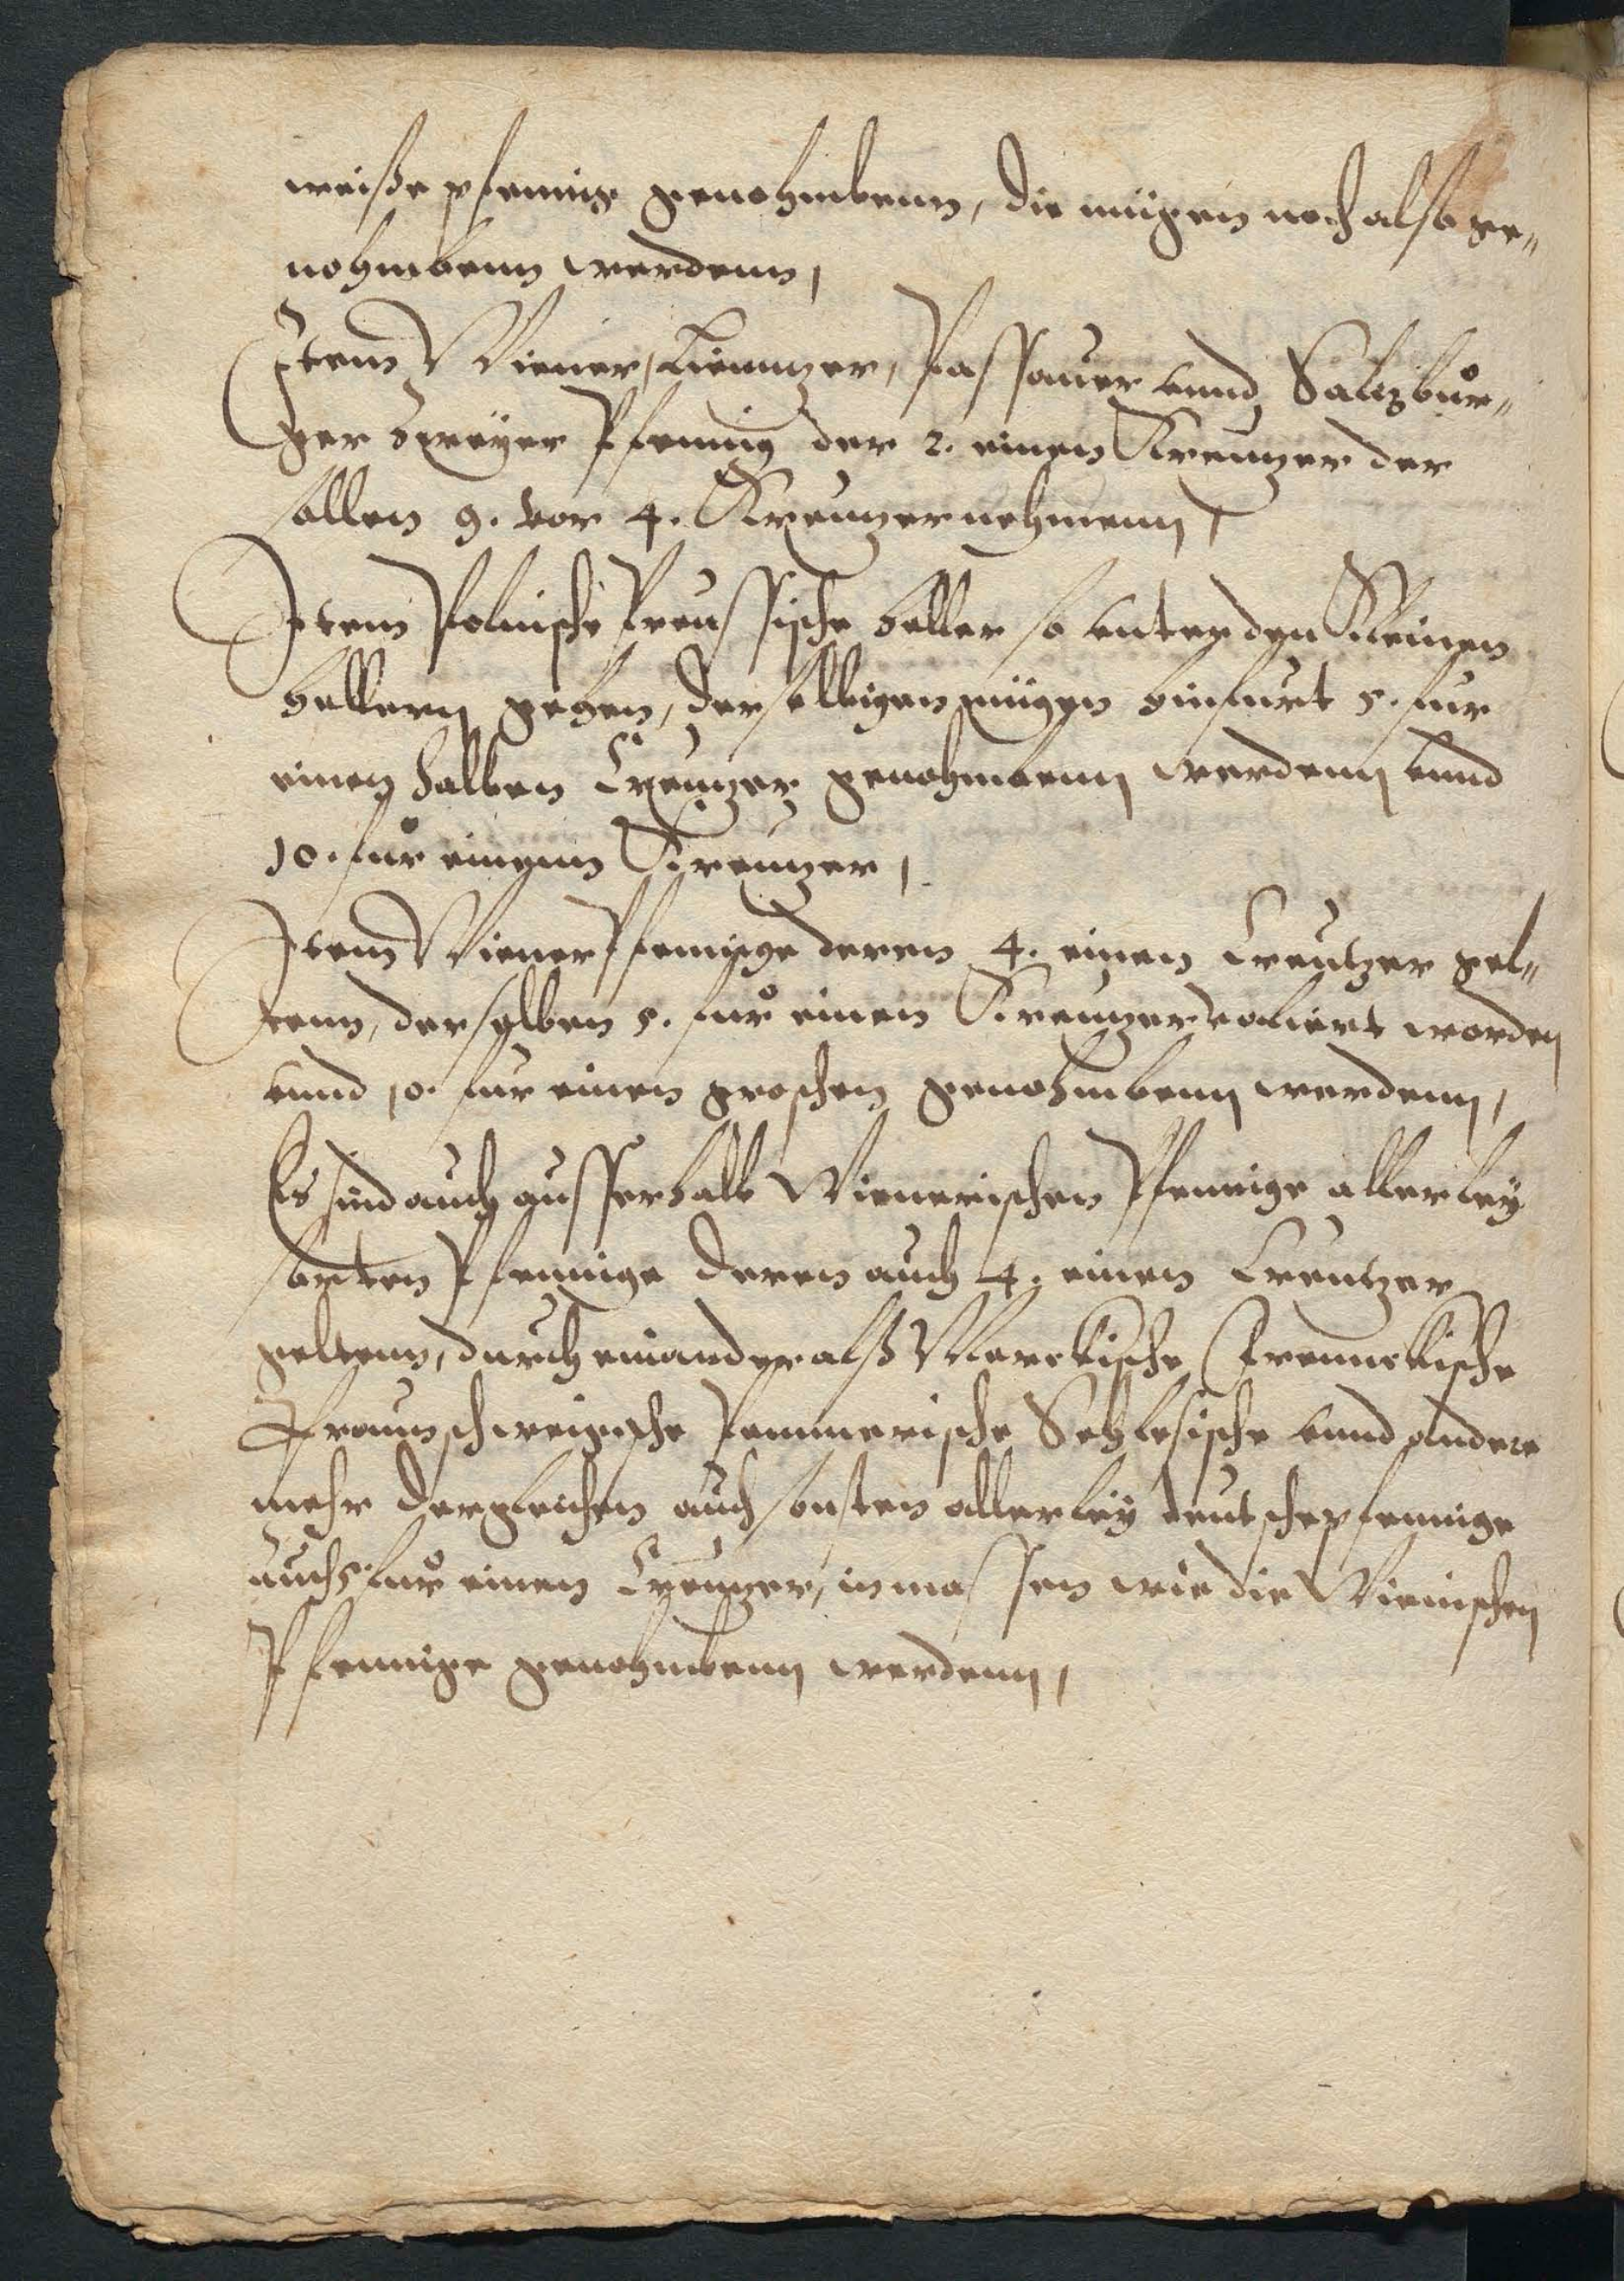 weiße pfennig genohmbenn, die mügen noch also ge„
nohmbenn werdenn,
Item Wiener, Lienntzer, Passauer vnnd Saltzbůr„
ger Zweÿer Pfennig der 2. einen Kreutzer der
sollen 9. vor 4. Kreutzer nehmenn,
Item Polnische Preussische heller so vnter den Kleinen
hellern gehen, der selbigen mügen hinfurt 5. fur
einen halben Creutzer genohmbenn werdenn vnnd
10. fůr einenn Kreutzer,
Item Wiener Pfennige deren 4. einen Creutzer gel„
tenn, derselben 5. fůr einen Kreutzer valiert worden
vnnd 10. fur einen groschen genohmbenn werdenn,
Es sind auch ausserhalb Wienerischen Pfennige allerleÿ
sorten Pfennige deren auch 4. einen Creutzer
geltenn, durch einander alß Merckische Frennckische
Braunschweigische Pommerische Schlesische vnnd andere
mehr dergleichen auch sonsten allerleÿ deutsche pfennige
auch 5. fůr einen Creutzer, inmassen wie die Wienischen
Pfennige genohmbenn werdenn,